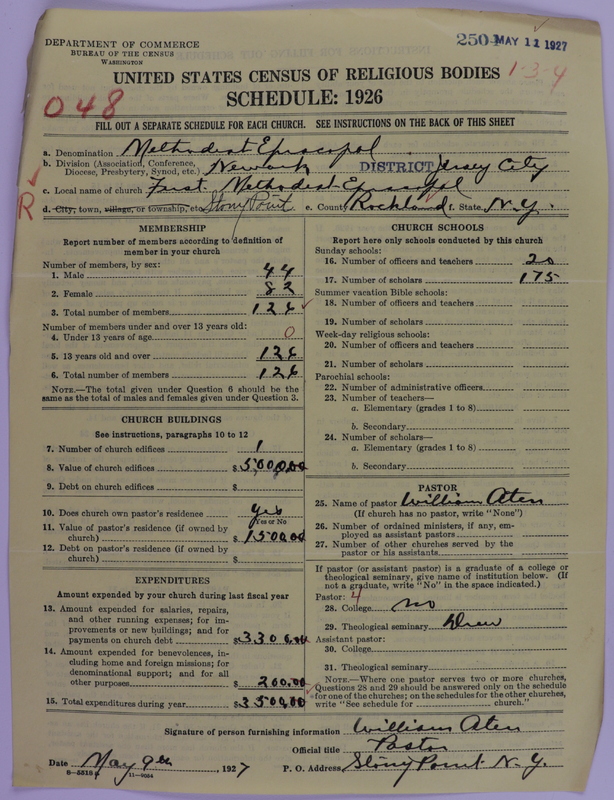 DEPARTMENT OF COMMERCE
BUREAU OF THE CENSUS
WASHINGTON
250 MAY 11 1927
UNITED STATES CENSUS OF RELIGIOUS BODIES
1-3-4
SCHEDULE: 1926
048
FILL OUT A SEPARATE SCHEDULE FOR EACH CHURCH. SEE INSTRUCTIONS ON THE BACK OF THIS SHEET
a. Denomination Methodist Episcopal
b. Division (Association, Conference, Diocese, Presbytery, Synod, etc.) Newark DISTRICT Jersey City
c. Local name of church First Methodist Episcopal
R
d. City, town, village, or township, etc. Stony Point e. County Rockland f. State N.Y.
MEMBERSHIP
Report number of members according to definition of
member in your church
Number of members, by sex:
1. Male 44
2. Female 82
3. Total number of members 126
Number of members under and over 13 years old:
4. Under 13 years of age 0
5. 13 years old and over 126
6. Total number of members 126
NOTE.—The total given under Question 6 should be the
same as the total of males and females given under Question 3.
CHURCH BUILDINGS
See instructions, paragraphs 10 to 12
7. Number of church edifices 1
8. Value of church edifices $
9. Debt on church edifices $
10. Does church own pastor's residence yes
Yes or No
11. Value of pastor's residence (if owned by
church) $
12. Debt on pastor's residence (if owned by
church) $
EXPENDITURES
Amount expended by your church during last fiscal year
13. Amount expended for salaries, repairs,
and other running expenses; for im-
provements or new buildings; and for
payments on church debt $ 3300.00
14. Amount expended for benevolences, in-
cluding home and foreign missions; for
denominational support; and for all
other purposes $ 200.00
15. Total expenditures during year $ 3500.00
CHURCH SCHOOLS
Report here only schools conducted by this church
Sunday schools:
16. Number of officers and teachers 20
17. Number of scholars 175
Summer vacation Bible schools:
18. Number of officers and teachers
19. Number of scholars
Week-day religious schools:
20. Number of officers and teachers
21. Number of scholars
Parochial schools:
22. Number of administrative officers
23. Number of teachers—
a. Elementary (grades 1 to 8)
b. Secondary
24. Number of scholars—
a. Elementary (grades 1 to 8)
b. Secondary
PASTOR
25. Name of pastor William Aten
(If church has no pastor, write "None")
26. Number of ordained ministers, if any, em-
ployed as assistant pastors
27. Number of other churches served by the
pastor or his assistants
If pastor (or assistant pastor) is a graduate of a college or
theological seminary, give name of institution below. (If
not a graduate, write "No" in the space indicated.)
Pastor: 4
28. College no
29. Theological seminary Drew
Assistant pastor:
30. College
31. Theological seminary
NOTE.—Where one pastor serves two or more churches,
Questions 28 and 29 should be answered only on the schedule
for one of the churches; on the schedules for the other churches,
write "See schedule for church."
Signature of person furnishing information William Aten
Official title Pastor
Date May 9th, 1927 P. O. Address Stony Point N.Y.